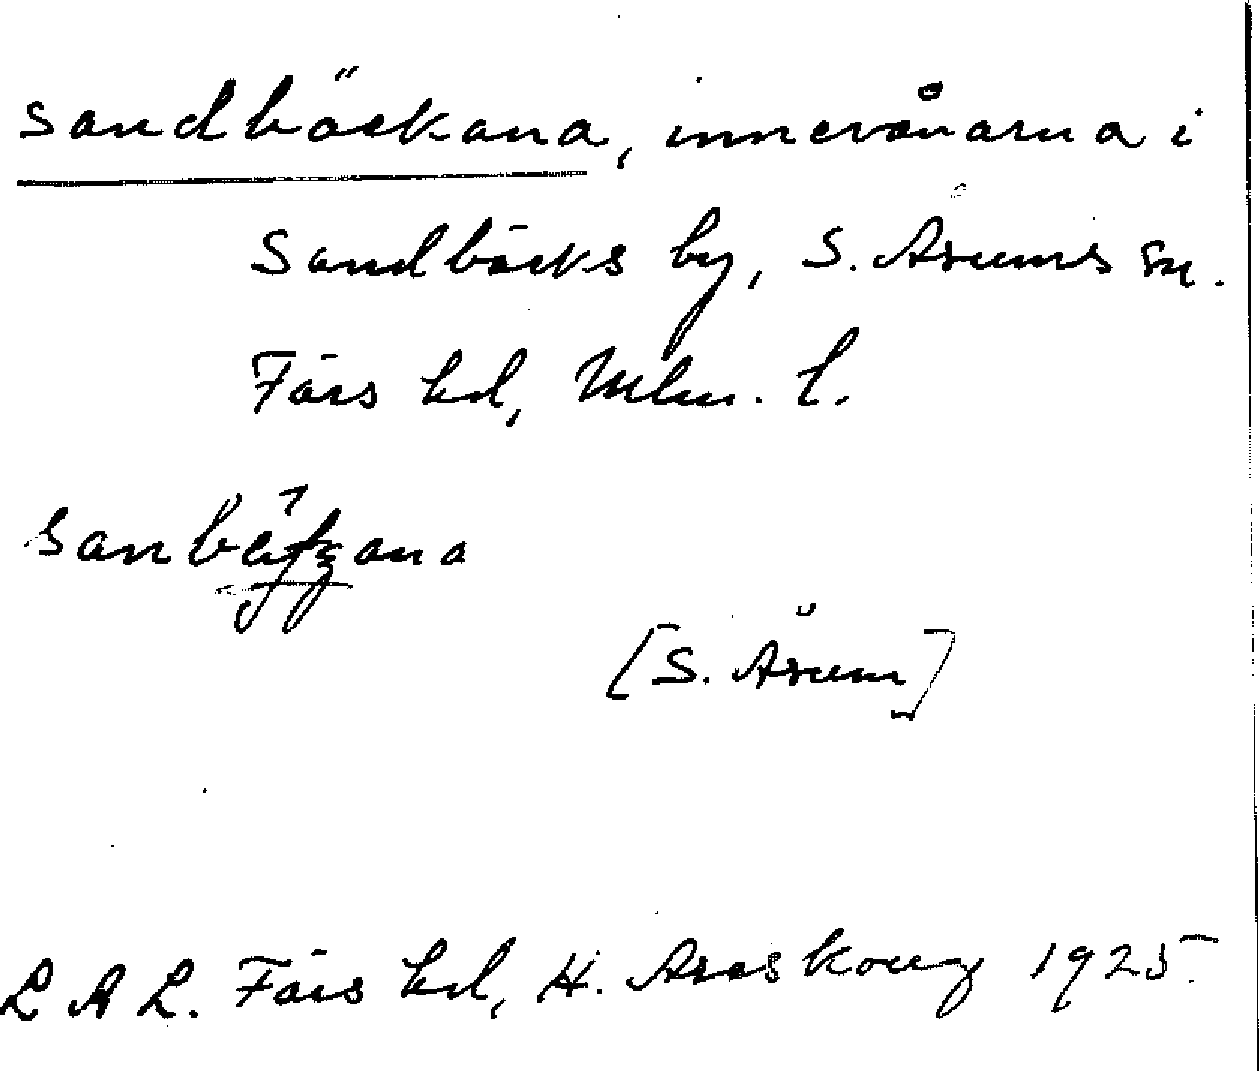 sandbäckana, innevånarna i
Sandbäcks by, S. Åsums sn.
Färs hd, Mlm. l.
[S. Åsum]
L A L. Färs hd, H. Areskoug 1925